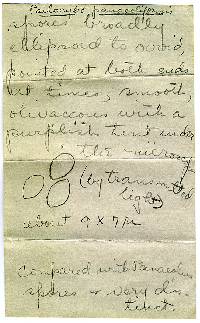 spores broadly
ellipsoid to ovoid,
pointed at both ends
at times, smooth,
olivaceous with a
purplish tint under
the microscope
(by transmitted
light)
about 9 x 7 µ
Compared with Panaeolus
spores & very dis-
tinct.